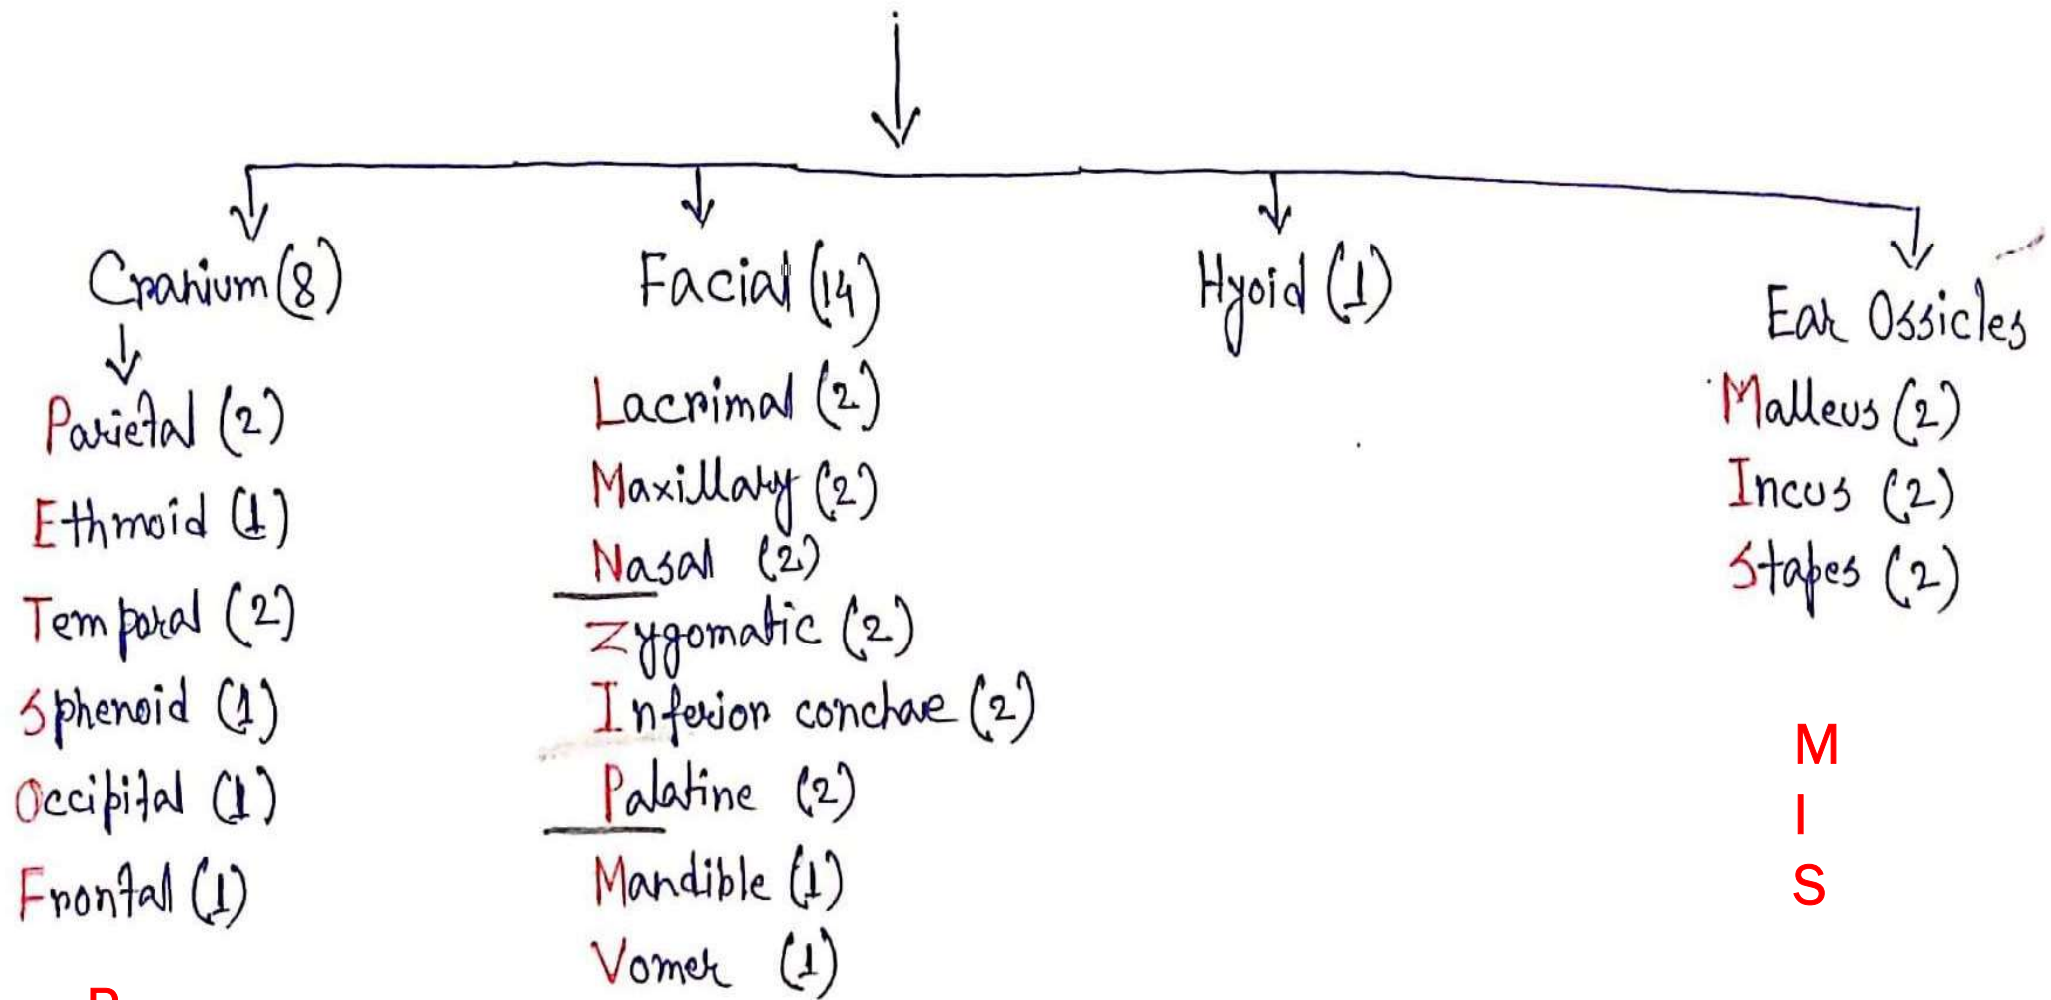 Cranium (8)
Parietal (2)
Ethmoid (1)
Temporal (2)
Sphenoid (1)
Occipital (1)
Frontal (1)
P
Facial (14)
Lacrimal (2)
Maxillary (2)
Nasal (2)
Zygomatic (2)
Inferior conchae (2)
Palatine (2)
Mandible (1)
Vomer (1)
Hyoid (1)
Ear Ossicles
Malleus (2)
Incus (2)
Stapes (2)
M
I
S